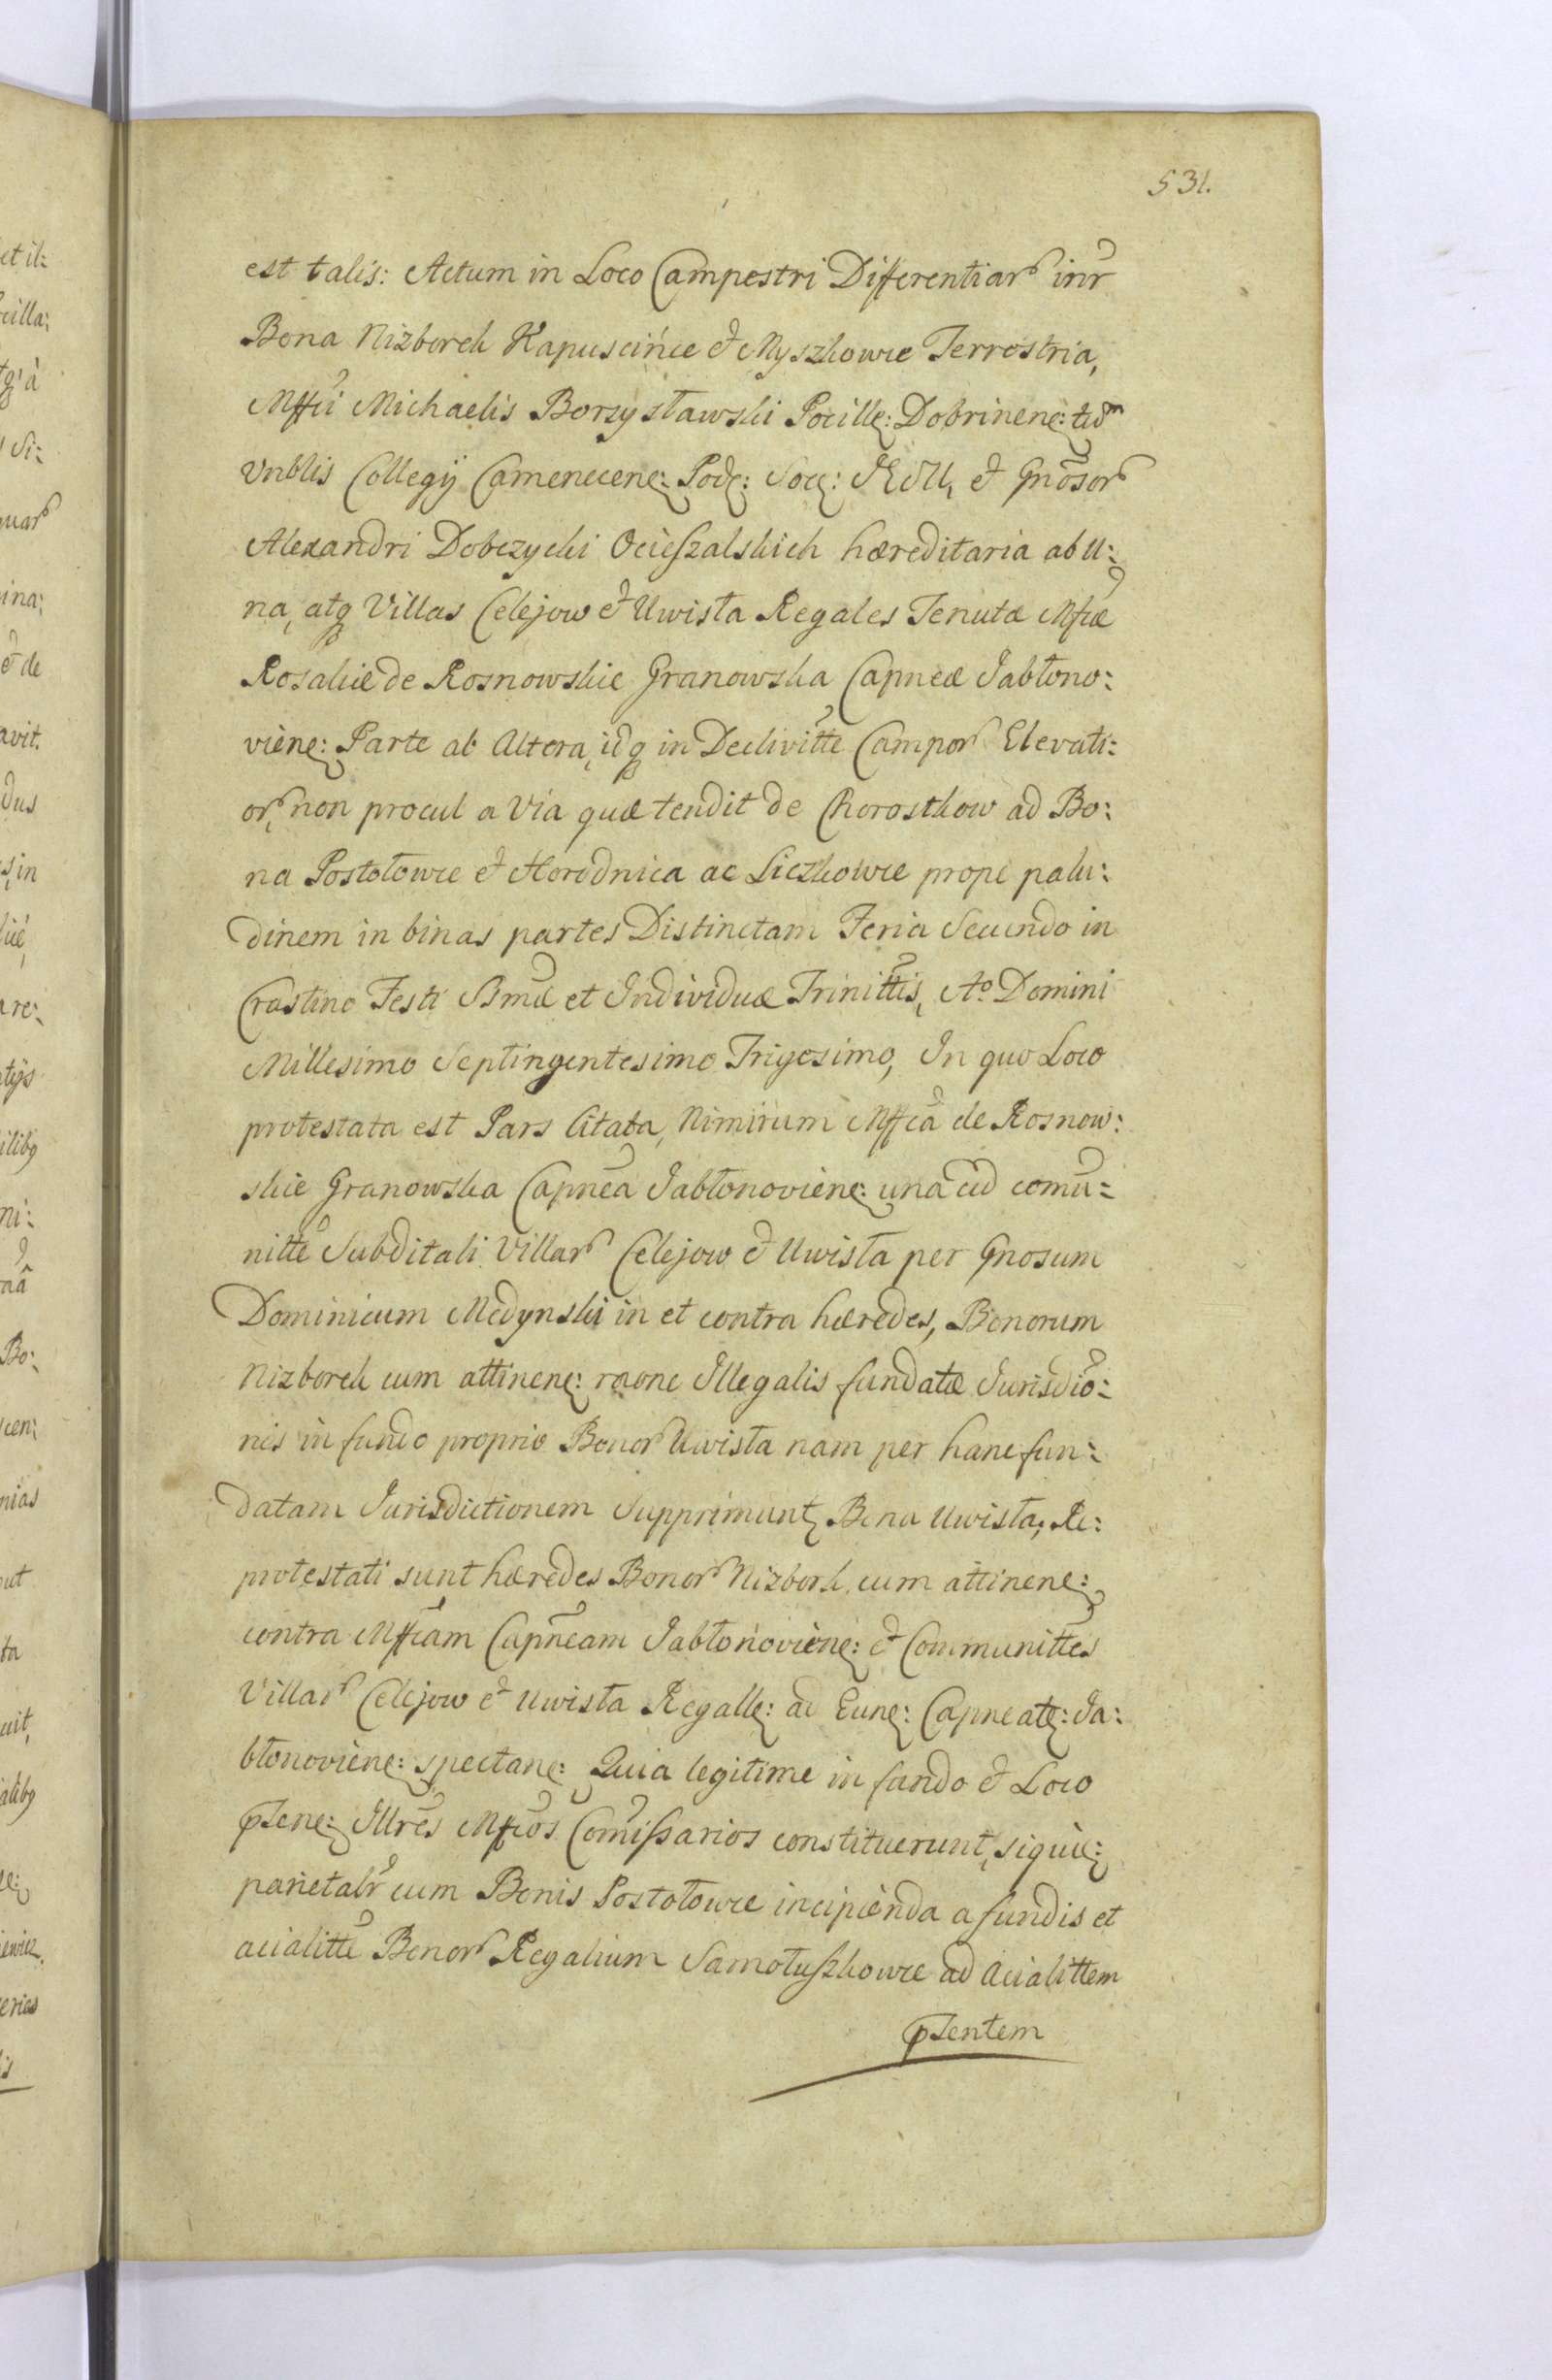 531.
est talis: Actum in Loco Campestri Differentiar inr
Bona Nizboreh Kapuscińce et Myszkowce Terrestria,
Mffci Michaelis Borzysławski Pocille: Dobrinene: tum
Vnblis Collegij Camenecene: Pod: Soc: JESU, et Gnosor
Alexandri Dobczycki Ocieszalskich hæreditaria ab U:
na, atq Villas Celejow et Uwisła Regales Tenutæ Mfcæ
Rosaliæ de Rosnowskie Granowska Capneæ Jabłono:
viene: Parte ab Altera, idq in Declivitte Campor Elevati:
or, non procul a Via quæ tendit de Chorostkow ad Bo:
na Postołowce et Horodnica ac Liczkowce prope palu:
dinem in binas partes Distinctam Feria Secundo in
Crastino Festi Smæ et Individuæ Trinittis, Ao Domini
Millesimo Septingentesimo Trigesimo, In quo Loco
protestata est Pars Citata, Nimirum Mffca de Rosnow:
skie Granowska Capnea Jabłonoviene: una cum comu:
nitte Subditali Villar Celejow et Uwisła per Gnosum
Dominicum Medynski in et contra hæredes, Bonorum
Nizboreh cum attinene: raone Illegalis fundatæ Jurisdio:
nis in fundo proprio Bonor Uwisła nam per hanc fun:
datam Jurisdictionem Supprimunt Bona Uwisła; Re:
protestati sunt hæredes Bonor Nizborh cum attinene:
contra Mffcam Capneam Jabłonoviene: et Communittes
Villar Celejow et Uwisła Regalle: ad Eune: Capneate: Ja:
błonoviene: spectane: Quia legitime in fundo et Loco
pSene: Illres Mfcos Comissarios constituerunt, siquie:
parietalr cum Bonis Postołowce incipienda a fundis et
acialitte Bonor Regalium Samołuszkowce ad Acialittem
pSentem